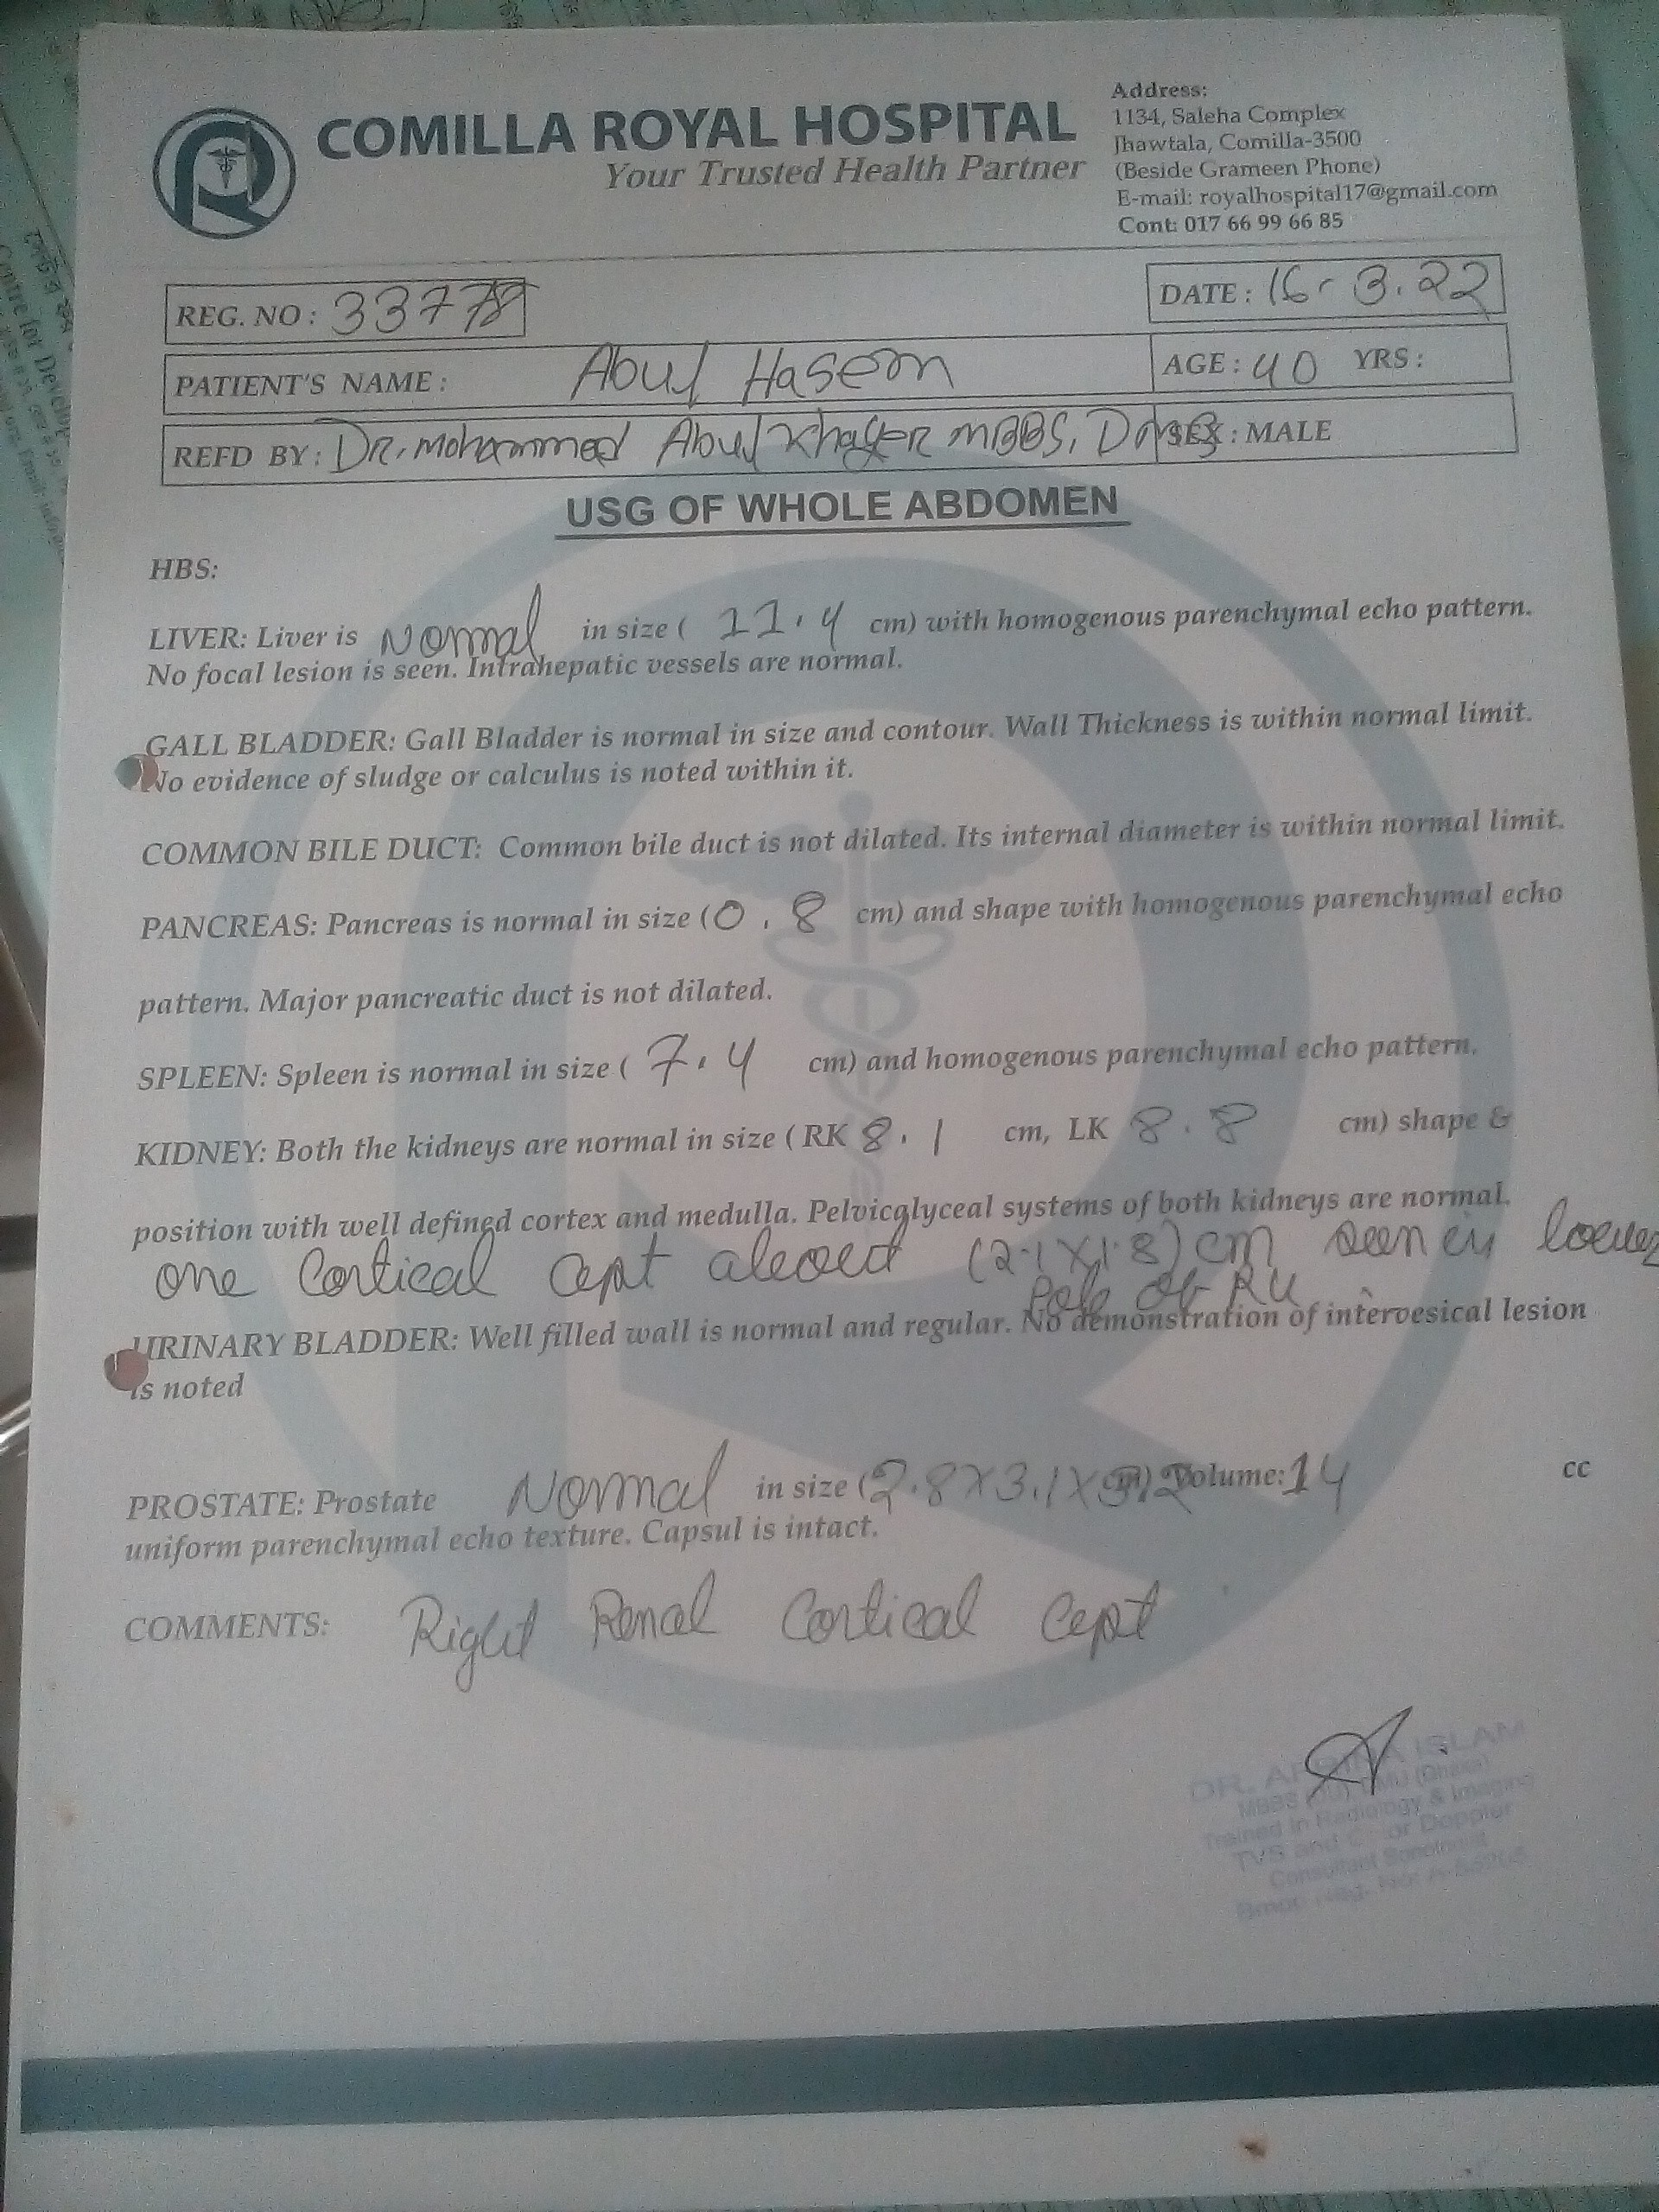 COMILLA ROYAL HOSPITAL
Your Trusted Health Partner
Address:
1134, Saleha Complex
Jhawtala, Comilla-3500
(Beside Grameen Phone)
E-mail: royalhospital17@gmail.com
Cont: 017 66 99 66 85
REG. NO: 33778
DATE: 16-3.22
PATIENT'S NAME: Abul Hasem
AGE: 40 YRS:
REFD BY: DR. Mohammed Abul Khayer MBBS,
SEX: MALE
USG OF WHOLE ABDOMEN
HBS:
LIVER: Liver is Normal in size ( 11.4 cm) with homogenous parenchymal echo pattern.
No focal lesion is seen. Intrahepatic vessels are normal.
GALL BLADDER: Gall Bladder is normal in size and contour. Wall Thickness is within normal limit.
No evidence of sludge or calculus is noted within it.
COMMON BILE DUCT: Common bile duct is not dilated. Its internal diameter is within normal limit.
PANCREAS: Pancreas is normal in size (0.8 cm) and shape with homogenous parenchymal echo
pattern. Major pancreatic duct is not dilated.
SPLEEN: Spleen is normal in size ( 7.4 cm) and homogenous parenchymal echo pattern.
KIDNEY: Both the kidneys are normal in size ( RK 8.1 cm, LK 8.8 cm) shape &
position with well defined cortex and medulla. Pelvicglyceal systems of both kidneys are normal.
one Cortical Cept about (2.1X1.8) cm seen in lower
Pole of RK
URINARY BLADDER: Well filled wall is normal and regular. No demonstration of intervesical lesion
is noted
PROSTATE: Prostate Normal in size (2.8X3.1X3.2 cm) Volume: 14 cc
uniform parenchymal echo texture. Capsul is intact.
COMMENTS: Right Renal Cortical Cept
ISLAM
Trained in Radiology & Imaging
TVS and Doppler
Consultant Sonologist